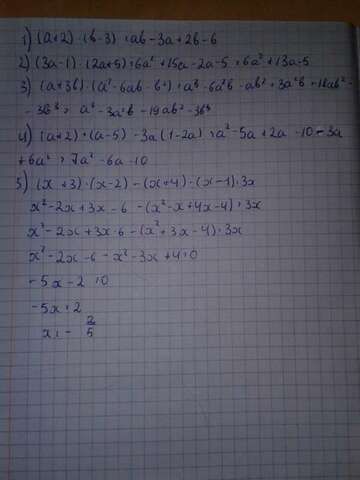 1) (a+2)·(b-3) = ab-3a+2b-6
2) (3a-1)·(2a+5) = 6a²+15a-2a-5 = 6a²+13a-5
3) (a+3b)·(a²-6ab-b²) = a³-6a²b-ab²+3a²b-18ab²-
-3b³ = a³-3a²b-19ab²-3b³
4) (a+2)·(a-5)-3a(1-2a) = a²-5a+2a-10-3a
+6a² = 7a²-6a-10
5) (x+3)·(x-2)-(x+4)·(x-1)=3x
x²-2x+3x-6-(x²-x+4x-4)=3x
x²-2x+3x-6-(x²+3x-4)=3x
x²-2x-6-x²-3x+4=0
-5x-2=0
-5x=2
x=-2/5